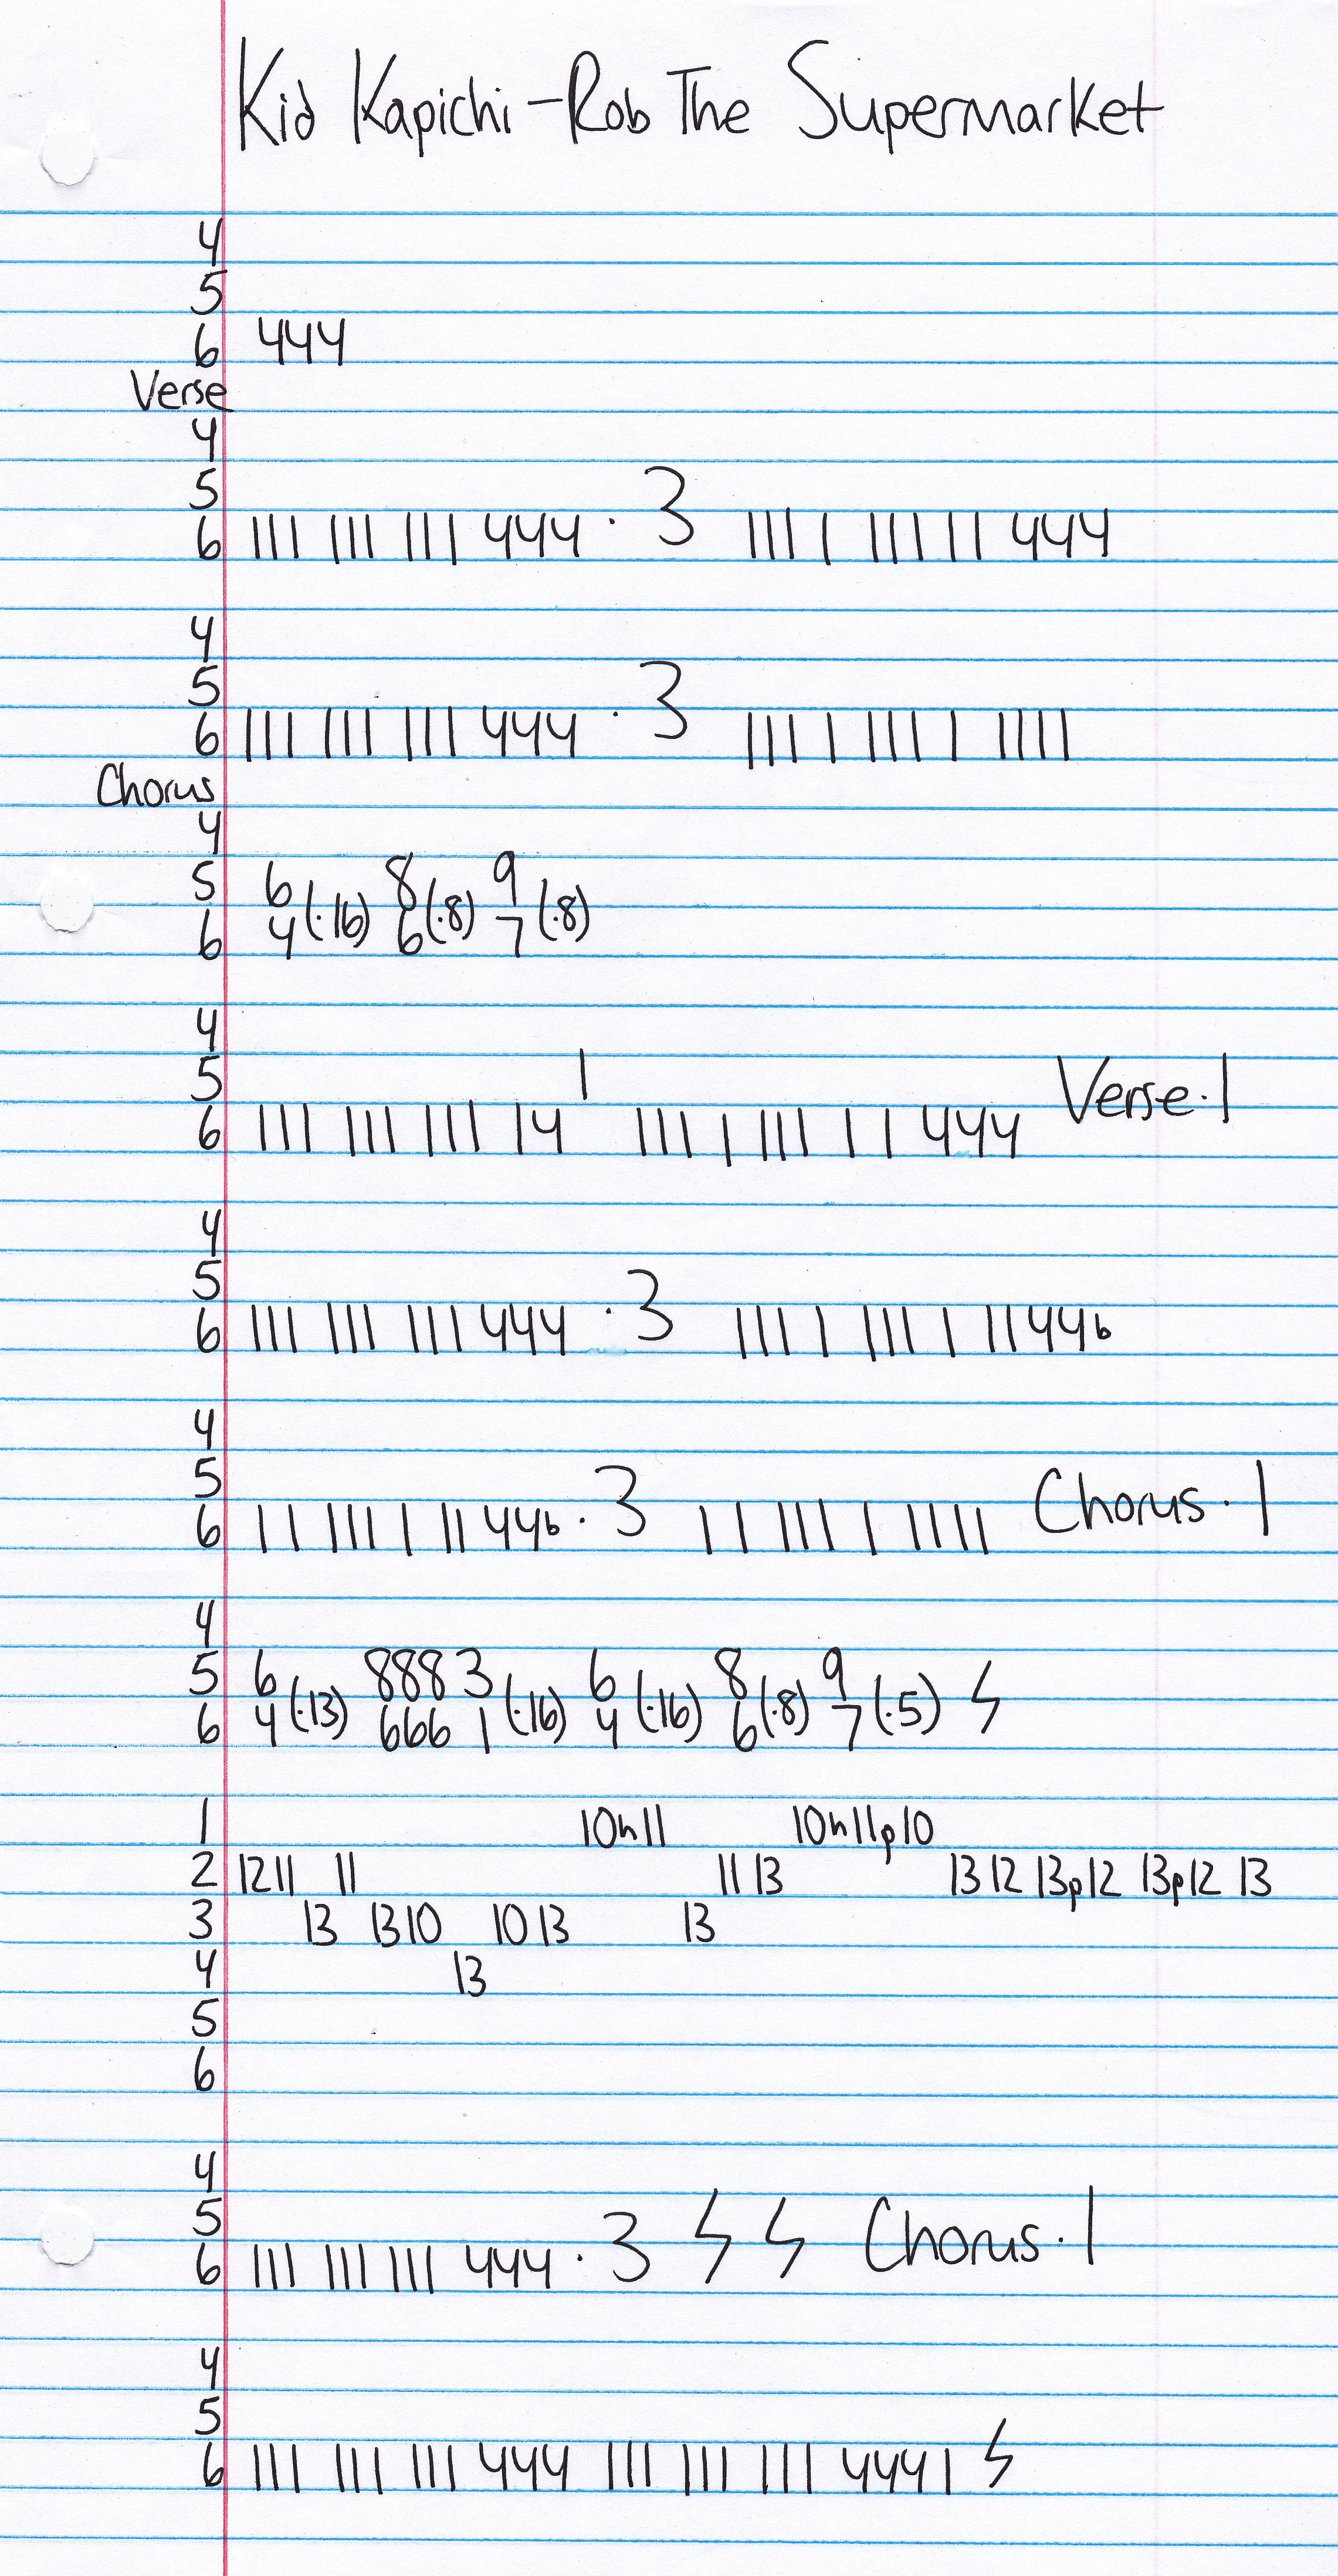 Kid Kapichi - Rob The Supermarket
4
5
6 444
Verse
4
5
6 111 111 111 444 · 3 111 1 111 1 1 444
4
5
6 111 111 111 444 · 3 111 1 111 1 1111
Chorus
4
5 6 8 9
6 4 (·16) 6 (·8) 7 (·8)
4
5 1
6 111 111 111 14 111 1 111 1 1 444 Verse·1
4
5
6 111 111 111 444 · 3 111 1 111 1 11 44b
4
5
6 1 1 111 1 11 44b · 3 1 1 111 1 1111 Chorus·1
4
5 6 888 3 6 8 9
6 4 (·13) 666 1 (·16) 4 (·16) 6 (·8) 7 (·5) ϟ
1 10h11 10h11p10
2 12 11 11 11 13 13 12 13p12 13p12 13
3 13 13 10 10 13 13
4 13
5
6
4
5
6 111 111 111 444 · 3 ϟ ϟ Chorus·1
4
5
6 111 111 111 444 111 111 111 4441 ϟ